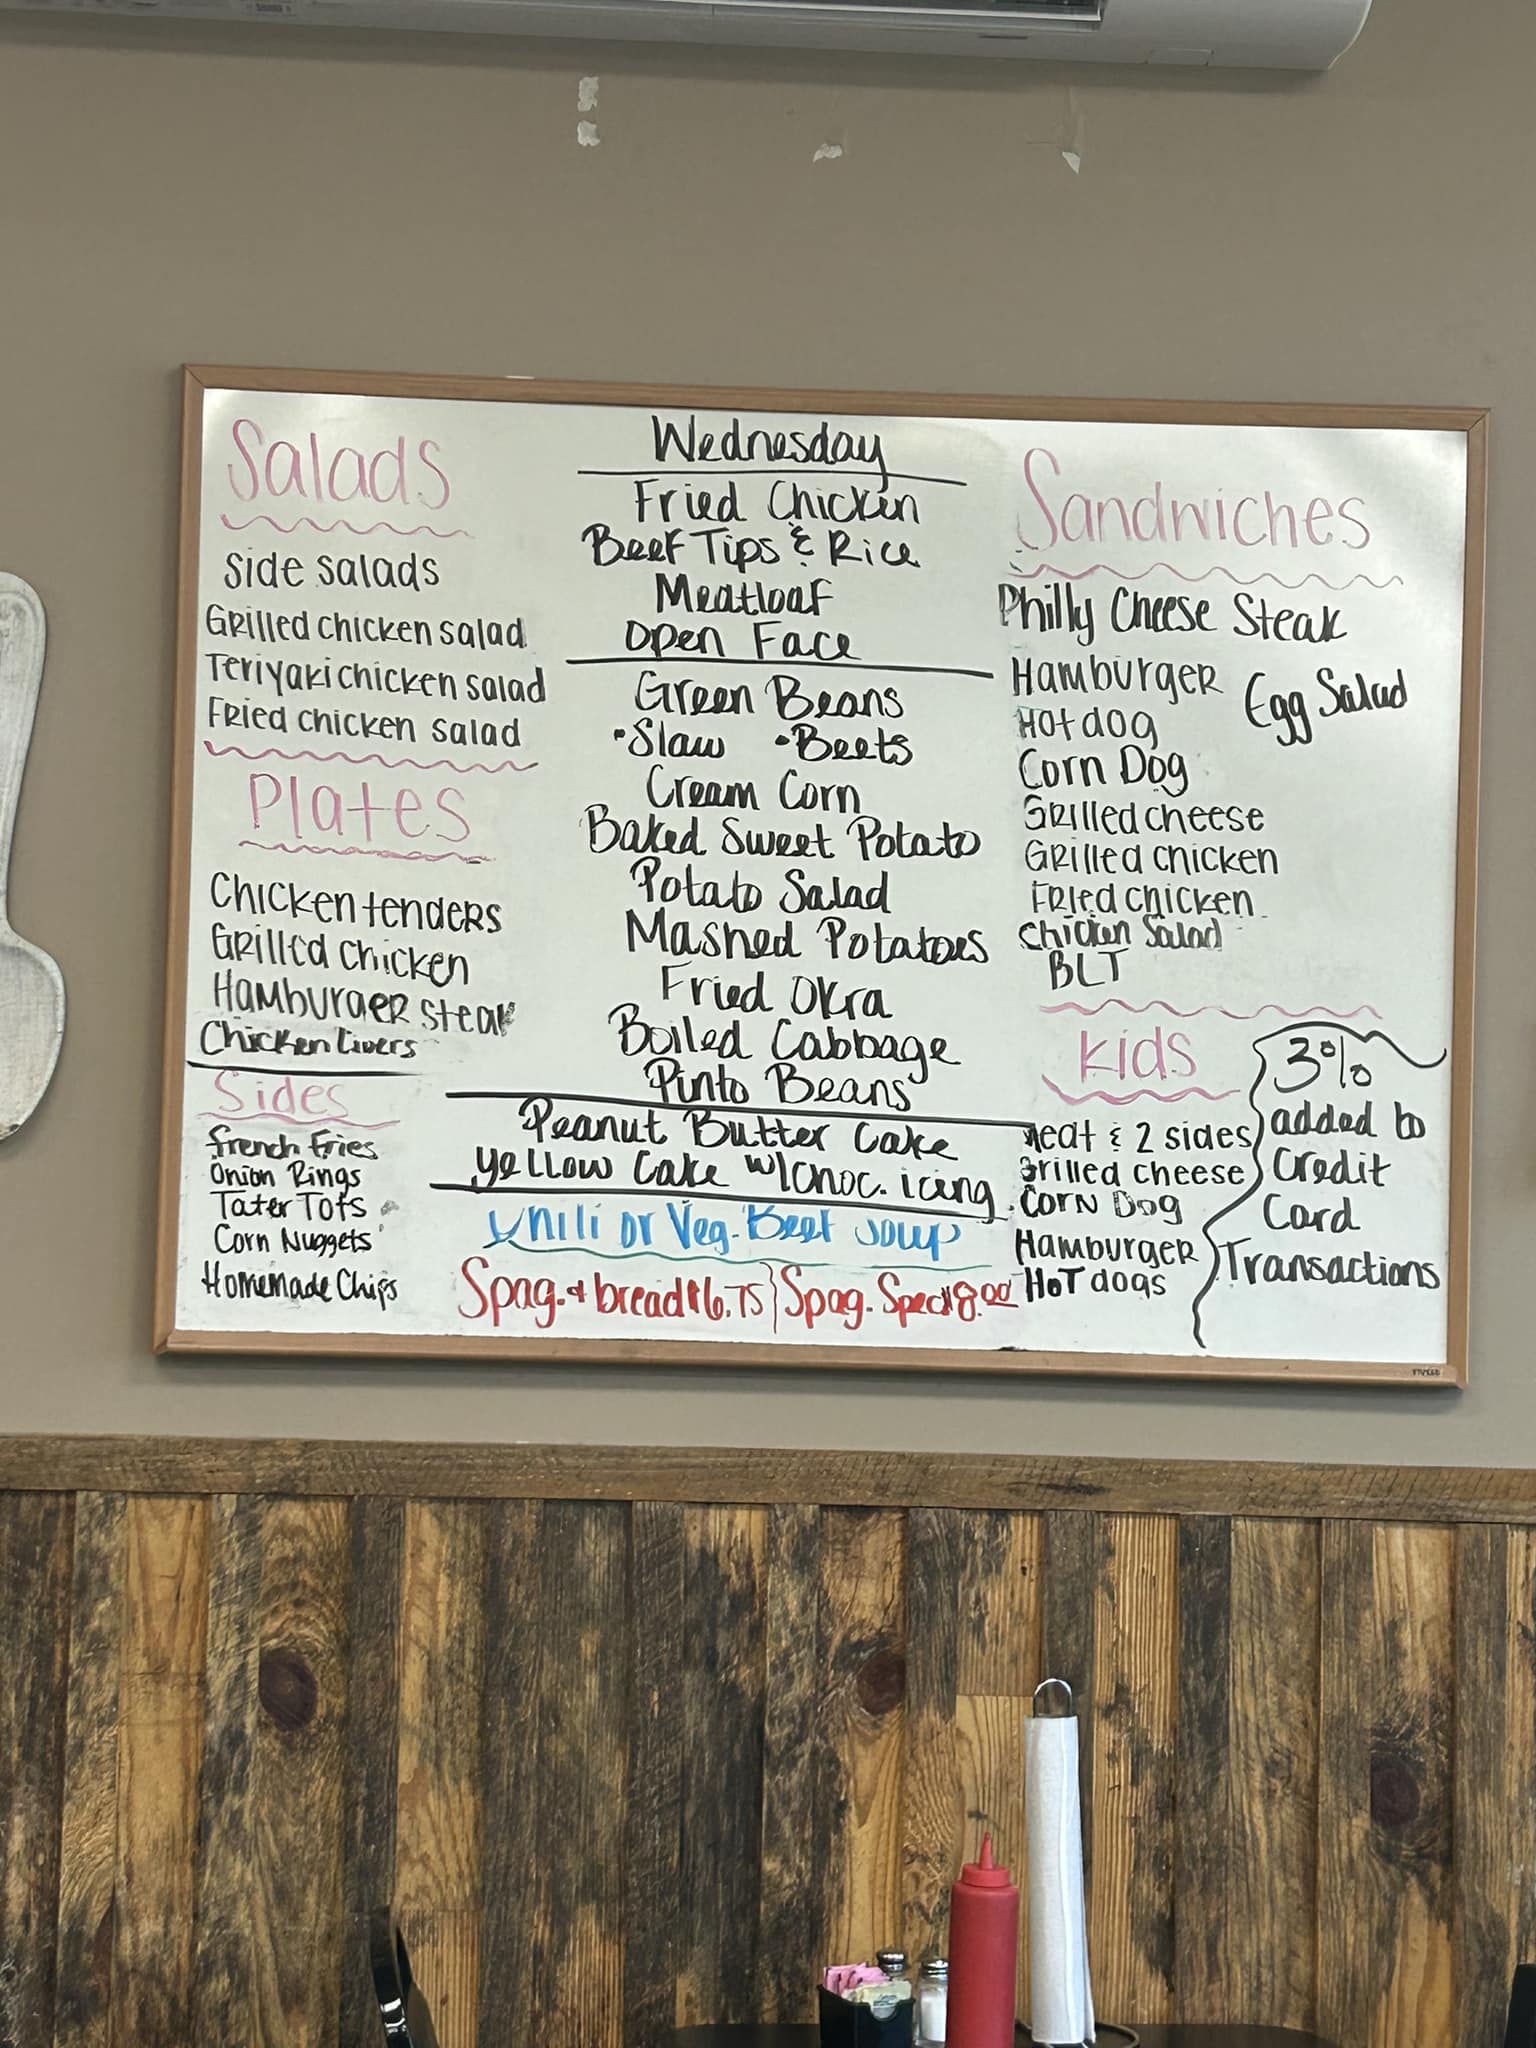 Salads
Side salads
Grilled chicken salad
Teriyaki chicken salad
Fried chicken salad
Plates
Chicken tenders
Grilled chicken
Hamburger steak
Chicken Livers
Sides
French Fries
Onion Rings
Tater Tots
Corn Nuggets
Homemade Chips
Wednesday
Fried Chicken
Beef Tips & Rice
Meatloaf
Open Face
Green Beans
•Slaw •Beets
Cream Corn
Baked Sweet Potato
Potato Salad
Mashed Potatoes
Fried Okra
Boiled Cabbage
Pinto Beans
Peanut Butter Cake
Yellow Cake w/Choc. icing
Chili or Veg. Beef Soup
Spag. & bread $6.75 Spag. Spec $8.00
Sandwiches
Philly Cheese Steak
Hamburger
Egg Salad
Hot dog
Corn Dog
Grilled cheese
Grilled chicken
Fried chicken
Chicken Salad
BLT
Kids
Meat & 2 sides
Grilled cheese
Corn Dog
Hamburger
Hot dogs
3%
added to
Credit
Card
Transactions